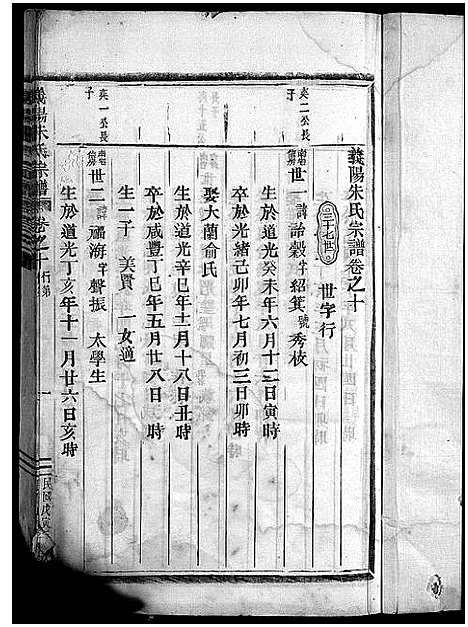 義陽朱氏宗譜卷之十
三十七世 世字行
奕二公長子
世一 諱詒穀字紹箕號秀枚
生於道光癸未年六月十三日寅時
卒於光緒己卯年七月初三日卯時
娶大蘭俞氏
生於道光辛巳年十二月十八日丑時
卒於咸豐丁巳年五月廿八日 時
生一子 美賢 一女適
奕一公長子
世二 諱福海字聲振 太學生
生於道光丁亥年十一月廿六日亥時
義陽朱氏宗譜 卷之十 行第 一 民國戊寅